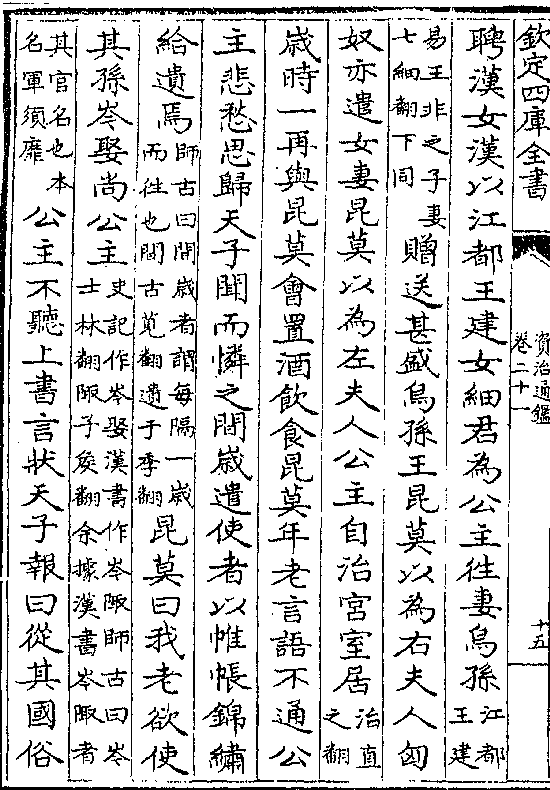 欽定四庫全書
資治通鑑
卷二十一
十五
聘漢女漢以江都王建女細君為公主往妻烏孫江都王建
易王非之子妻七細翻下同贈送甚盛烏孫王昆莫以為右夫人匈
奴亦遣女妻昆莫以為左夫人公主自治宮室居治直之翻
歲時一再與昆莫會置酒飲食昆莫年老言語不通公
主悲愁思歸天子聞而憐之間歲遣使者以帷帳錦繡
給遺焉師古曰間歲者謂每隔一歲而往也間古莧翻遺于季翻昆莫曰我老欲使
其孫岑娶尚公主史記作岑娶漢書作岑陬師古曰岑士林翻陬子侯翻余據漢書岑陬者
其官名也本名軍須靡公主不聽上書言狀天子報曰從其國俗